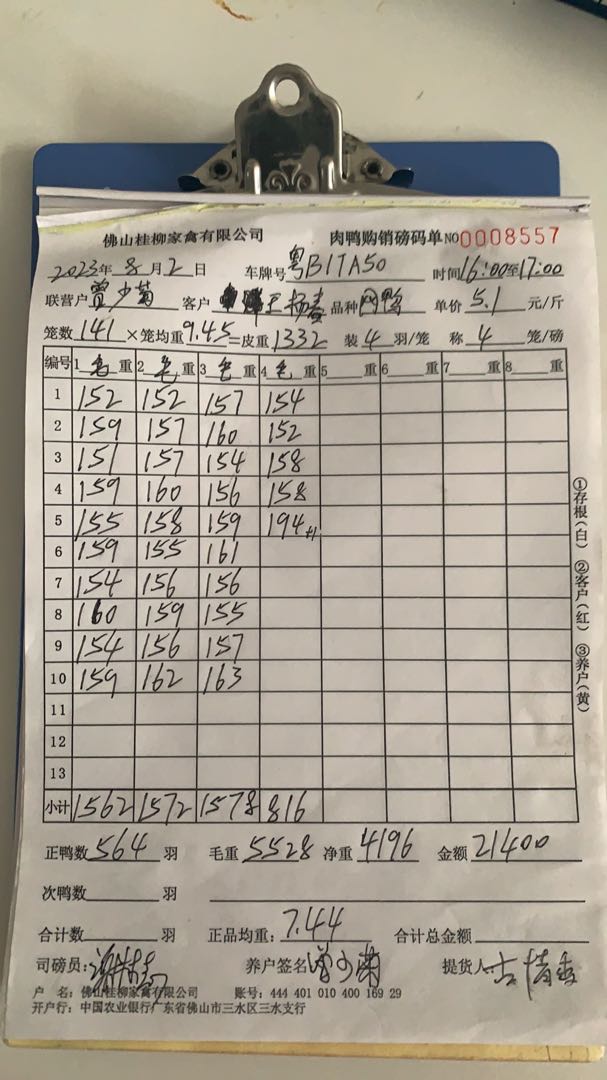 佛山桂柳家禽有限公司 肉鸭购销磅码单 NO 0008557
2023年 8月 2日 车牌号 粤B1TA50 时间16:00至17:00
联营户 曾少菊 客户 品种 网鸭 单价 5.1 元/斤
笼数 141 ×笼均重 9.45 =皮重 1332 装 4 羽/笼 称 4 笼/磅
编号 1 毛 重 2 毛 重 3 毛 重 4 毛 重 5 重 6 重 7 重 8 重
1 152 152 157 154
2 159 157 160 152
3 151 157 154 158
4 159 160 156 158
5 155 158 159 194 +1
6 159 155 161
7 154 156 156
8 160 159 155
9 154 156 157
10 159 162 163
11
12
13
小计 1562 1572 1578 816
正鸭数 564 羽 毛重 5528 净重 4196 金额 21400
次鸭数 羽
合计数 羽 正品均重: 7.44 合计总金额
司磅员: 养户签名 曾少菊 提货人
户 名: 佛山桂柳家禽有限公司 账号: 444 401 010 400 169 29
开户行: 中国农业银行广东省佛山市三水区三水支行
①存根(白) ②客户(红) ③养户(黄)